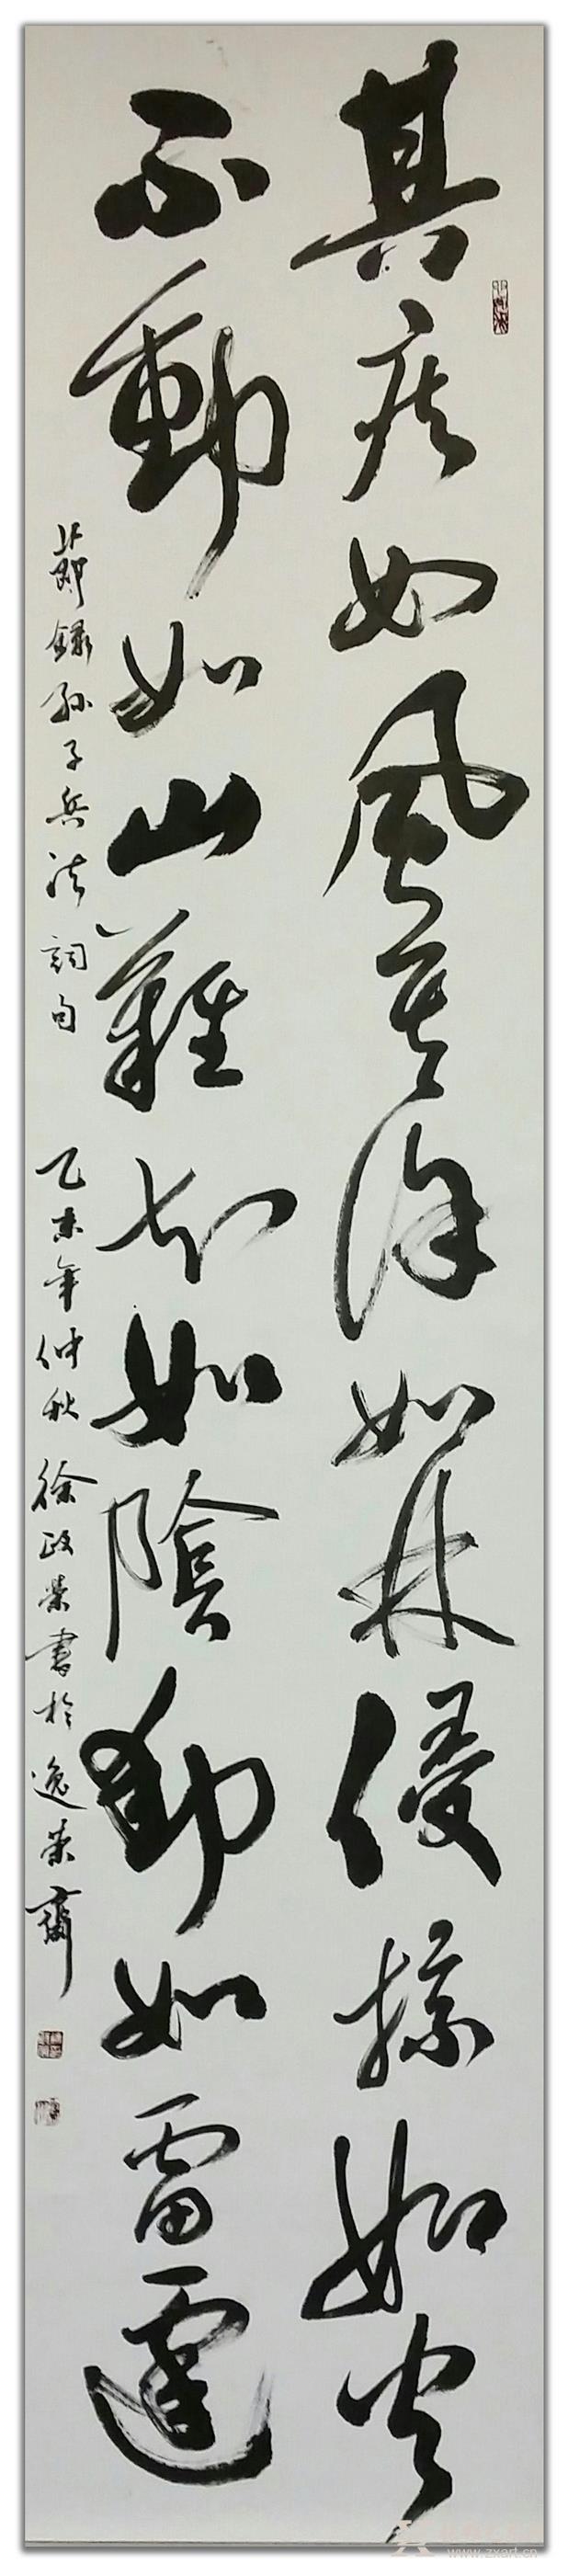 其疾如風其徐如林侵掠如火
不動如山難知如陰動如雷霆
節錄孫子兵法詞句 乙未年仲秋徐政榮書於逸榮齋
www.zxart.cn